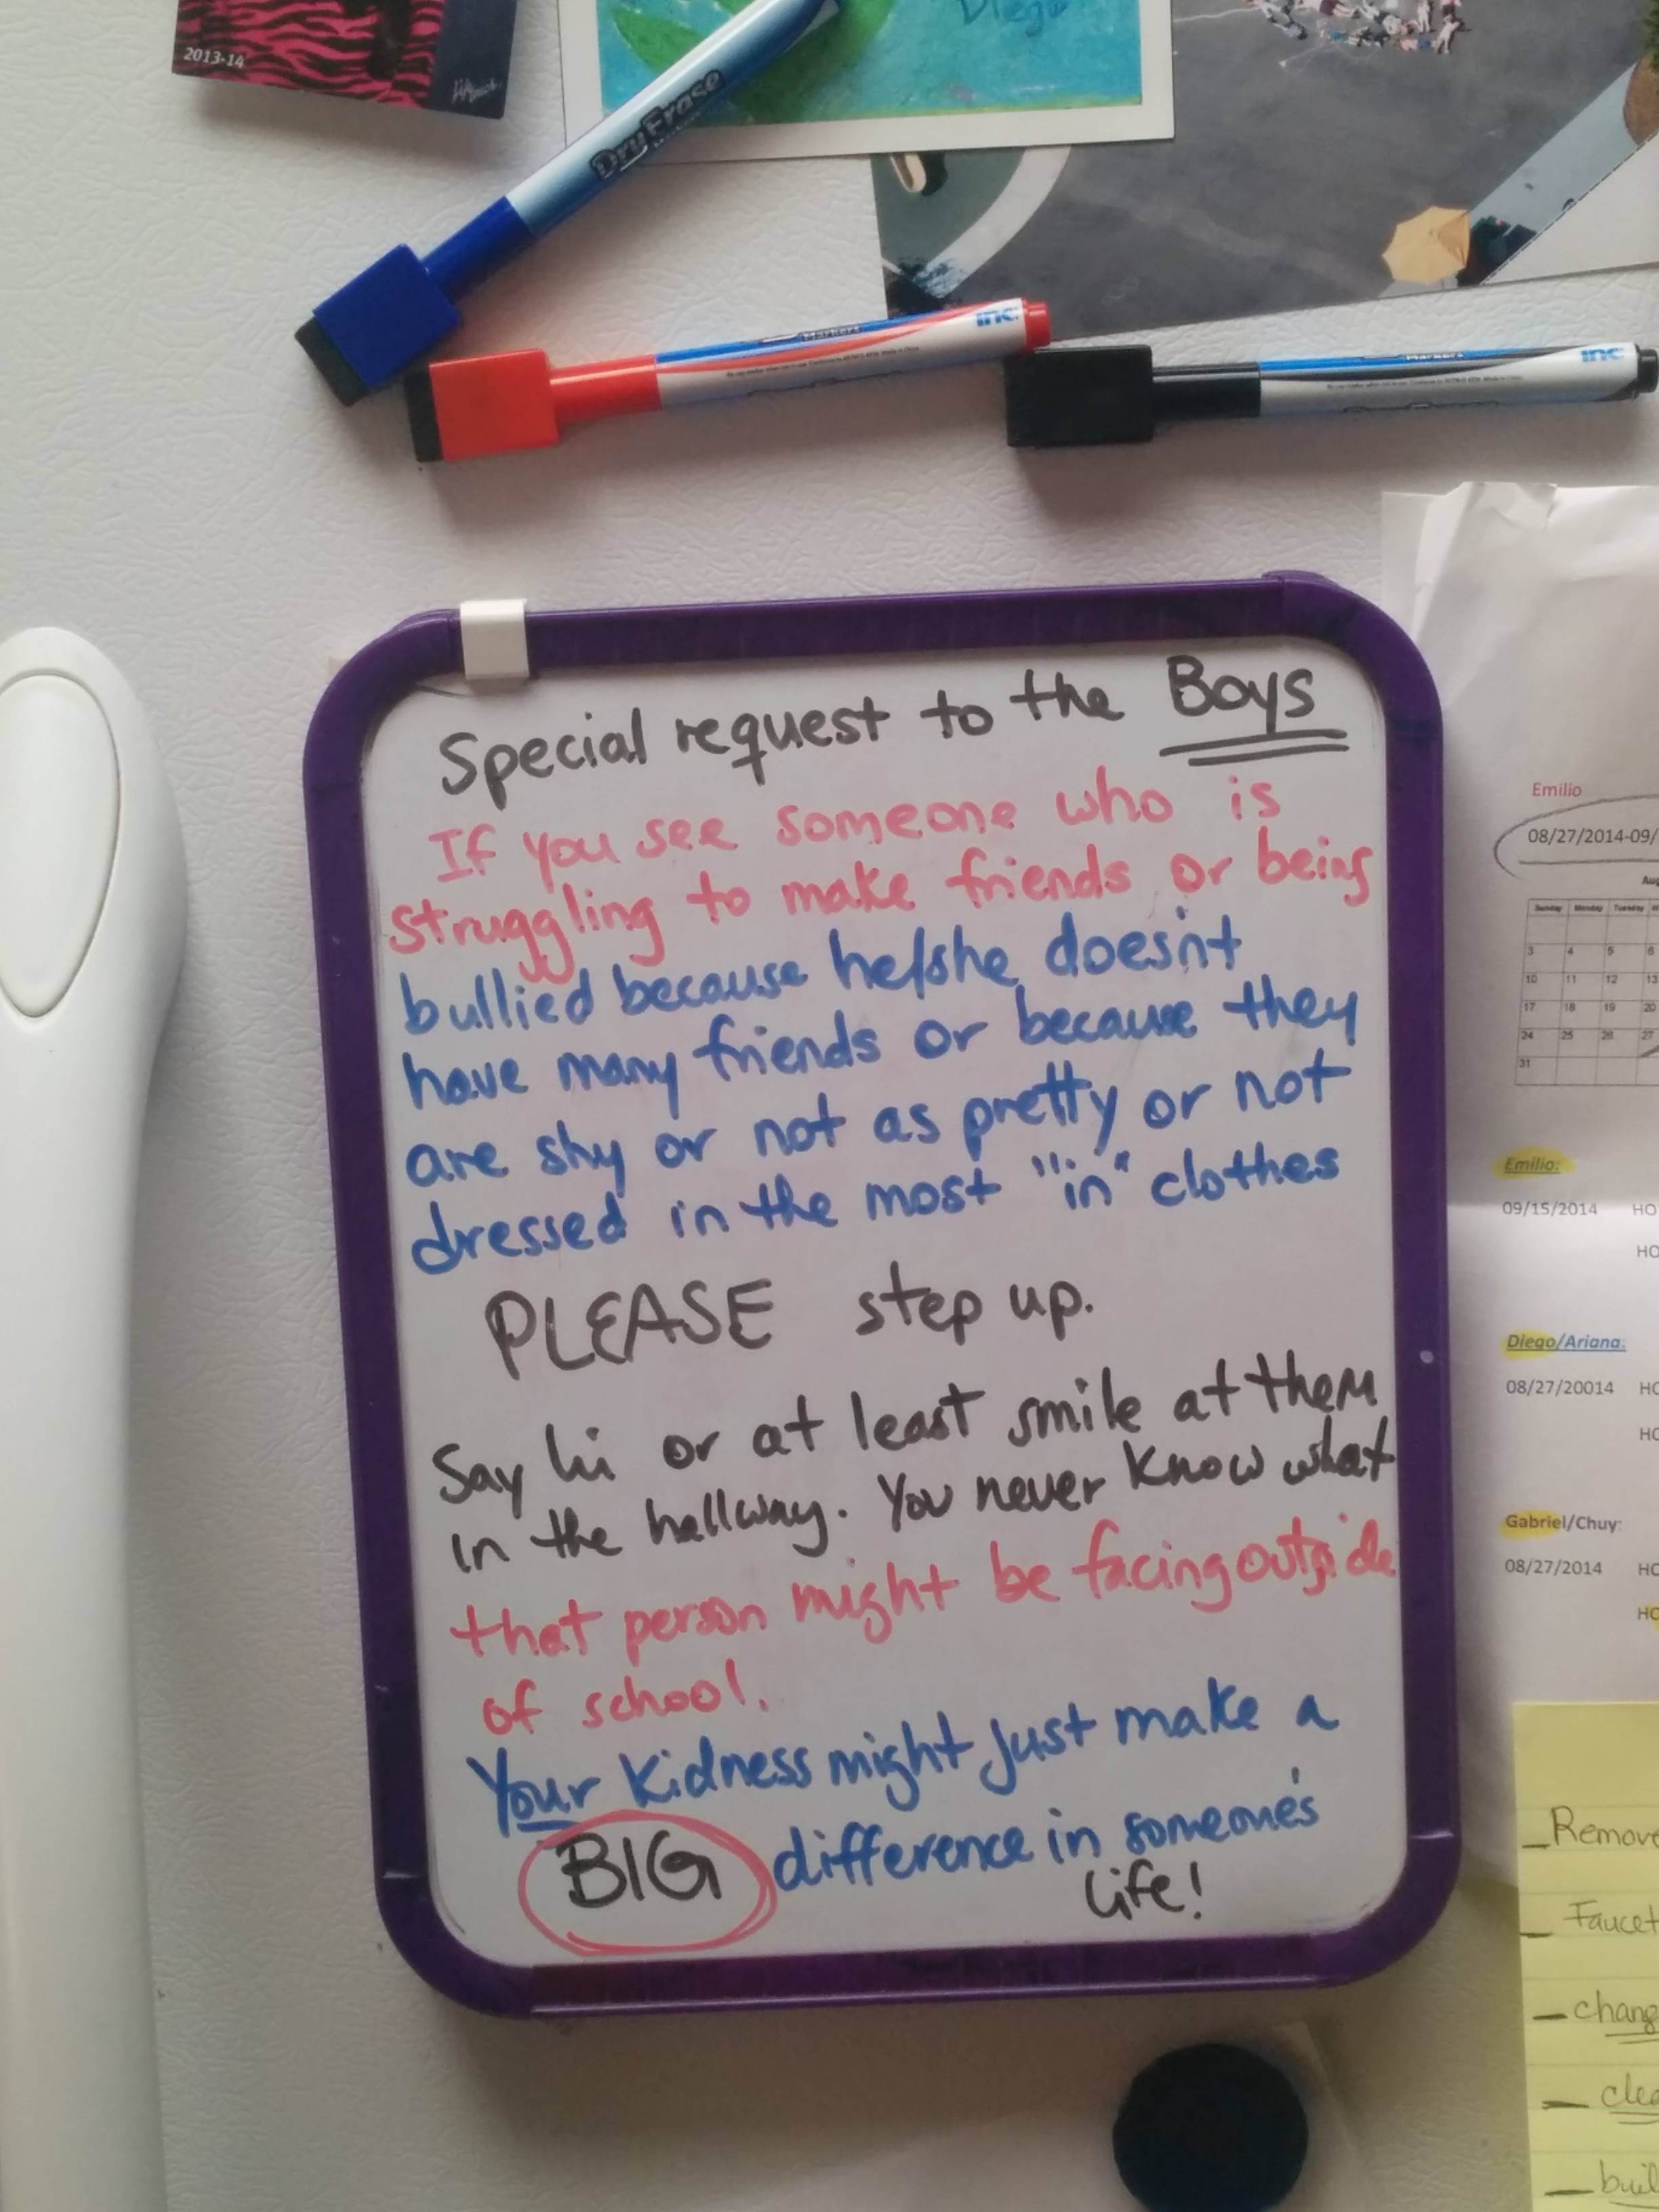 2013-14
Diego
DryErase
Markers
inc
Markers
inc
Special request to the Boys
If you see someone who is
struggling to make friends or being
bullied because he/she doesn't
have many friends or because they
are shy or not as pretty or not
dressed in the most "in" clothes
PLEASE step up.
Say hi or at least smile at them
in the hallway. You never know what
that person might be facing outside
of school.
Your kidness might just make a
BIG difference in someone's
life!
Emilio
08/27/2014-09/
Aug
Sunday Monday Tuesday
3 4 5 6
10 11 12 13
17 18 19 20
24 25 26 27
31
Emilio:
09/15/2014 HO
HO
Diego/Ariana:
08/27/20014 HO
HO
Gabriel/Chuy:
08/27/2014 HO
HO
_Remove
_ Faucet
- chang
- clea
- buil